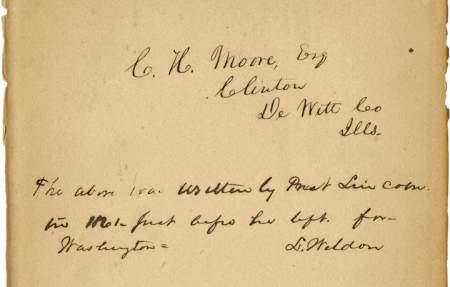 C. H. Moore, Esq
Clinton
De Witt Co
Ills.
The above was written by Prest Lincoln
in just before he left for
Washington =
L. Weldon